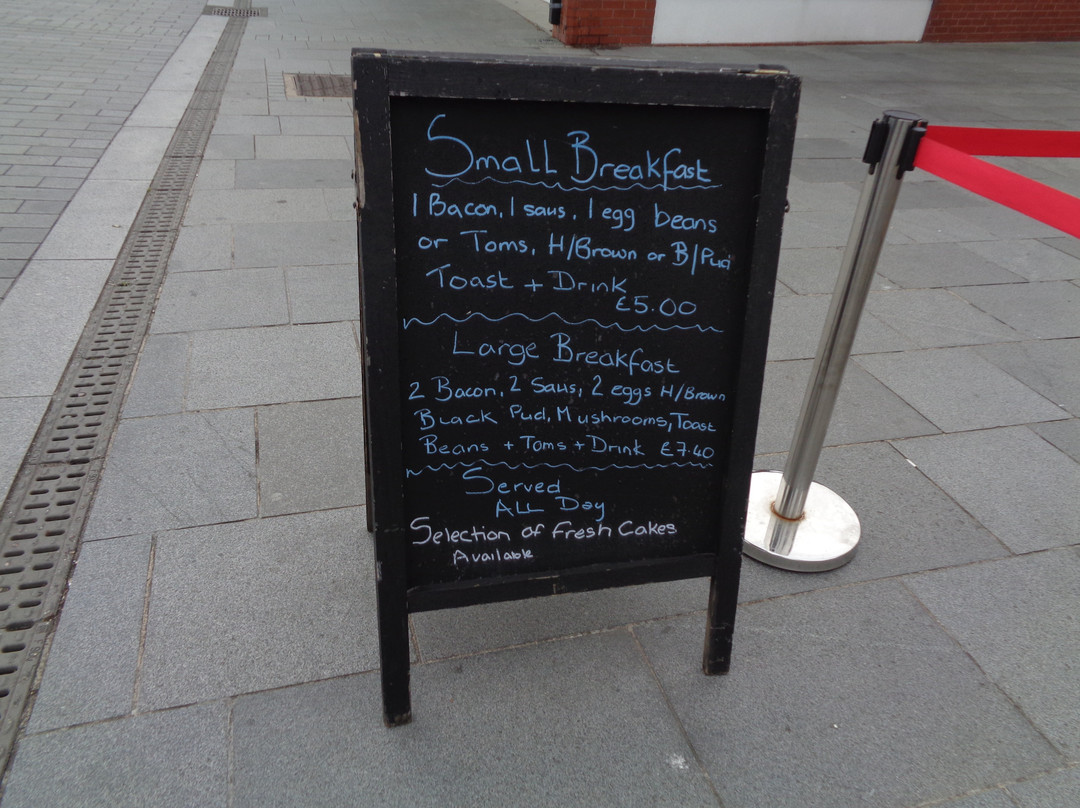 Small Breakfast
1 Bacon, 1 saus, 1 egg beans
or Toms, H/Brown or B/Pud
Toast + Drink
£5.00
Large Breakfast
2 Bacon, 2 Saus, 2 eggs H/Brown
Black Pud, Mushrooms, Toast
Beans + Toms + Drink £7.40
Served
ALL Day
Selection of Fresh Cakes
Available